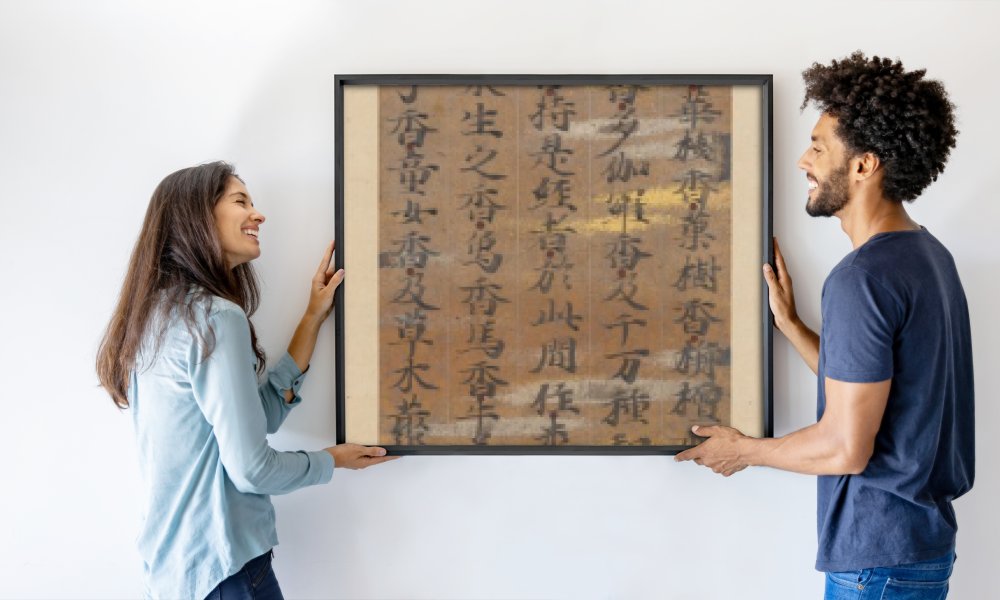 華樹香菓樹香栴檀
香多伽羅香及千万種
持是經者於此間住
生之香象香馬香牛
子香童女香及草木藂